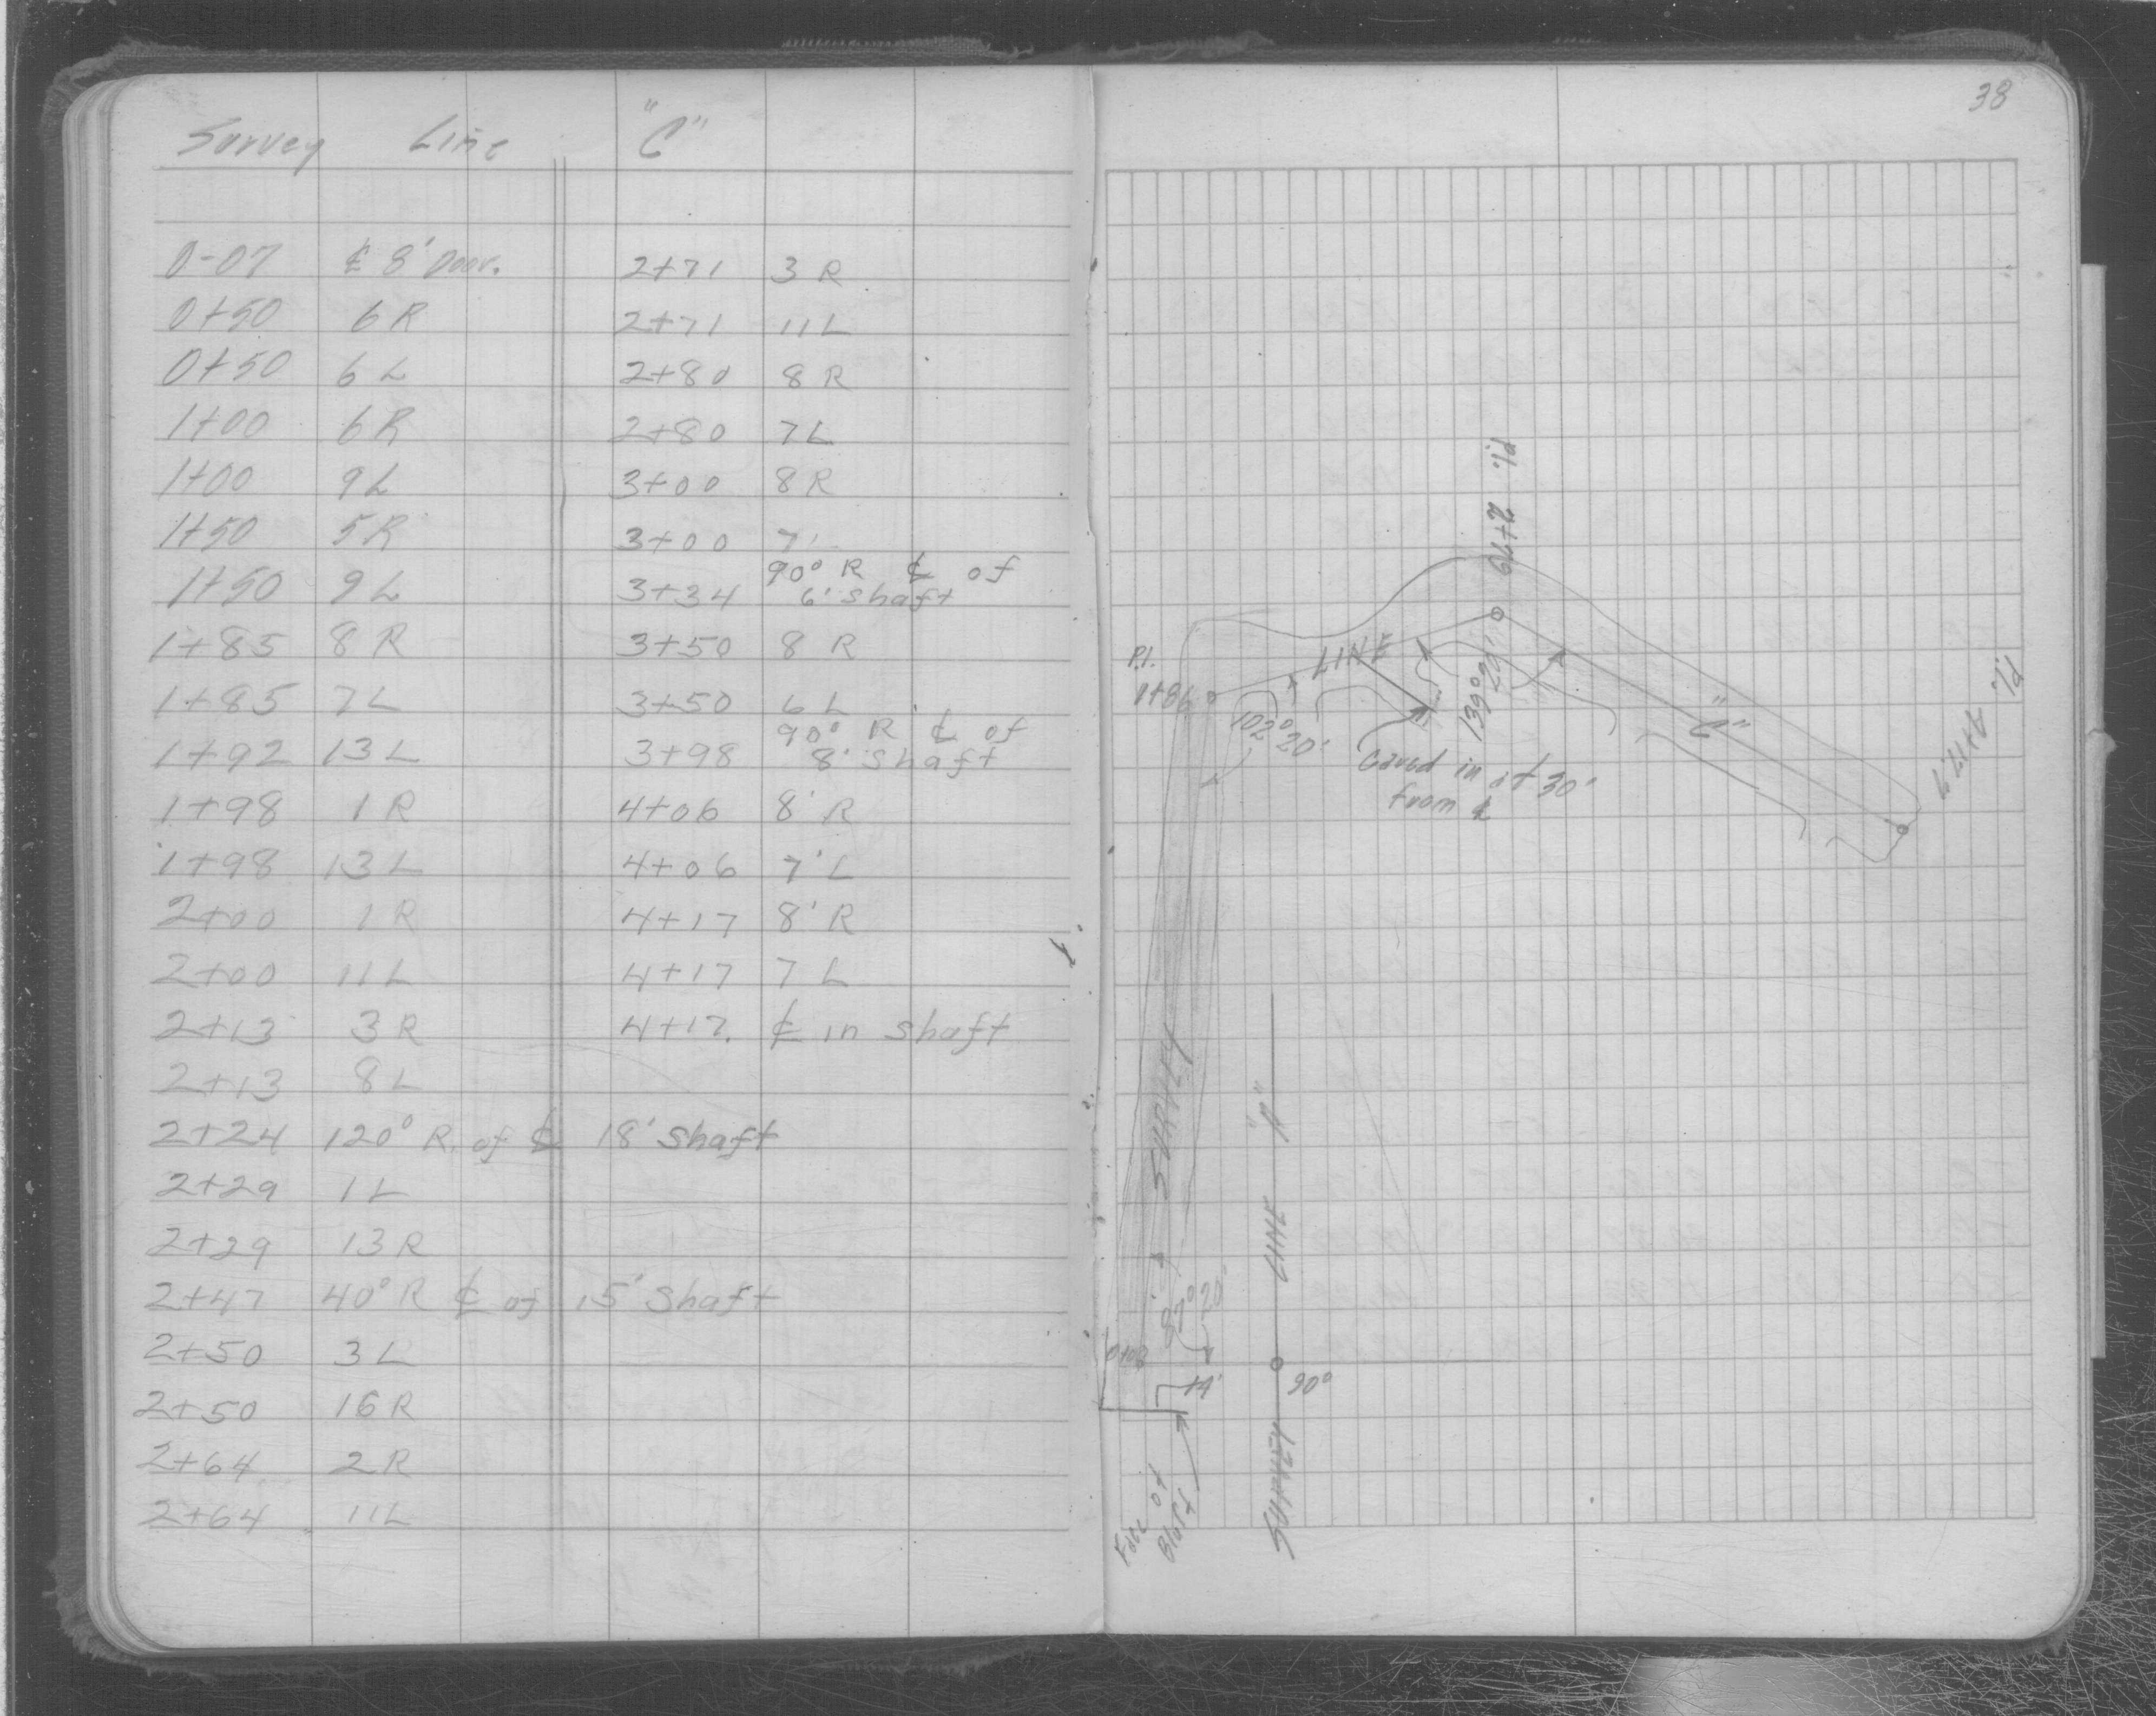 Survey Line "C"
0-07 ℄ 8' Door.
0+50 6 R
0+50 6 L
1+00 6 R
1+00 9 L
1+50 5 R
1+50 9 L
1+85 8 R
1+85 7 L
1+92 13 L
1+98 1 R
1+98 13 L
2+00 1 R
2+00 11 L
2+13 3 R
2+13 8 L
2+24 120° R. of ℄ 18' shaft
2+29 1 L
2+29 13 R
2+47 40° R ℄ of 15' shaft
2+50 3 L
2+50 16 R
2+64 2 R
2+64 11 L
2+71 3 R
2+71 11 L
2+80 8 R
2+80 7 L
3+00 8 R
3+00 7'
3+34 90° R ℄ of
6' shaft
3+50 8 R
3+50 6 L
3+98 90° R ℄ of
8' shaft
4+06 8' R
4+06 7' L
4+17 8' R
4+17 7 L
4+17. ℄ in shaft
38
P.I. 2+79
P.I.
1+86
LINE
102° 20'
139° 20'
"C"
Caved in at 30'
from ℄
P.I. 4+17.9
SURVEY
87° 20'
0+00
14'
90°
SURVEY LINE "A"
Face of
Bluff